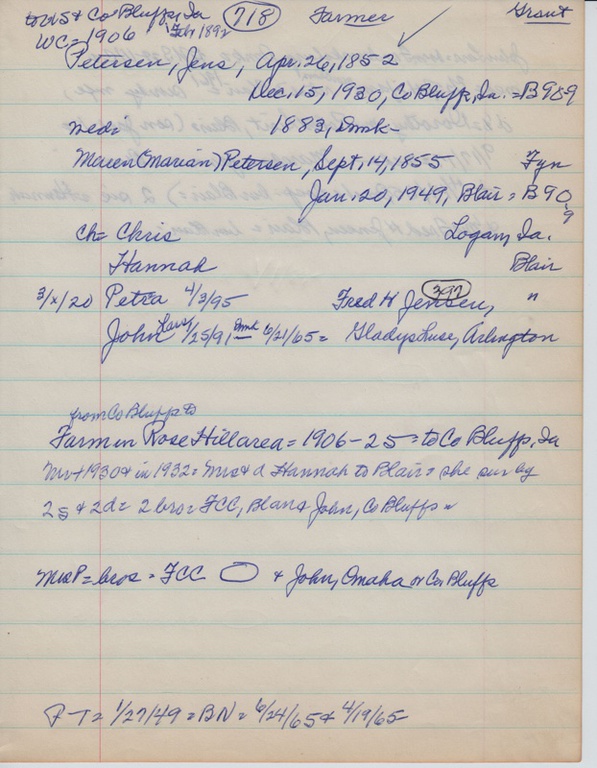 to US & Co Bluffs, Ia 718 Farmer Grant
WC = 1906 Feb 1892
Petersen, Jens, Apr. 26, 1852
Dec. 15, 1930, Co Bluffs, Ia. = B989
med = 1883, Dmk
Maren (Marian) Petersen, Sept. 14, 1855 Fyn
Jan. 20, 1949, Blair = B90-9
Ch = Chris Logan, Ia.
Hannah Blair
3/x/20 Petra 4/3/95 Fred H Jensen, 397 "
John Lars 1/25/91, Dmk 6/21/65 = Gladys Luse, Arlington
from Co Bluffs to
Farm in Rose Hill area = 1906-25 = to Co Bluffs, Ia
Mr + 1930 & in 1932 = Mrs & d Hannah to Blair = she sur by
2s & 2d = 2 bro = FCC, Blair & John, Co Bluffs
Mrs P = bros = FCC & John, Omaha or Co Bluffs
P-T = 1/27/49 = BN = 6/24/65 & 4/19/65